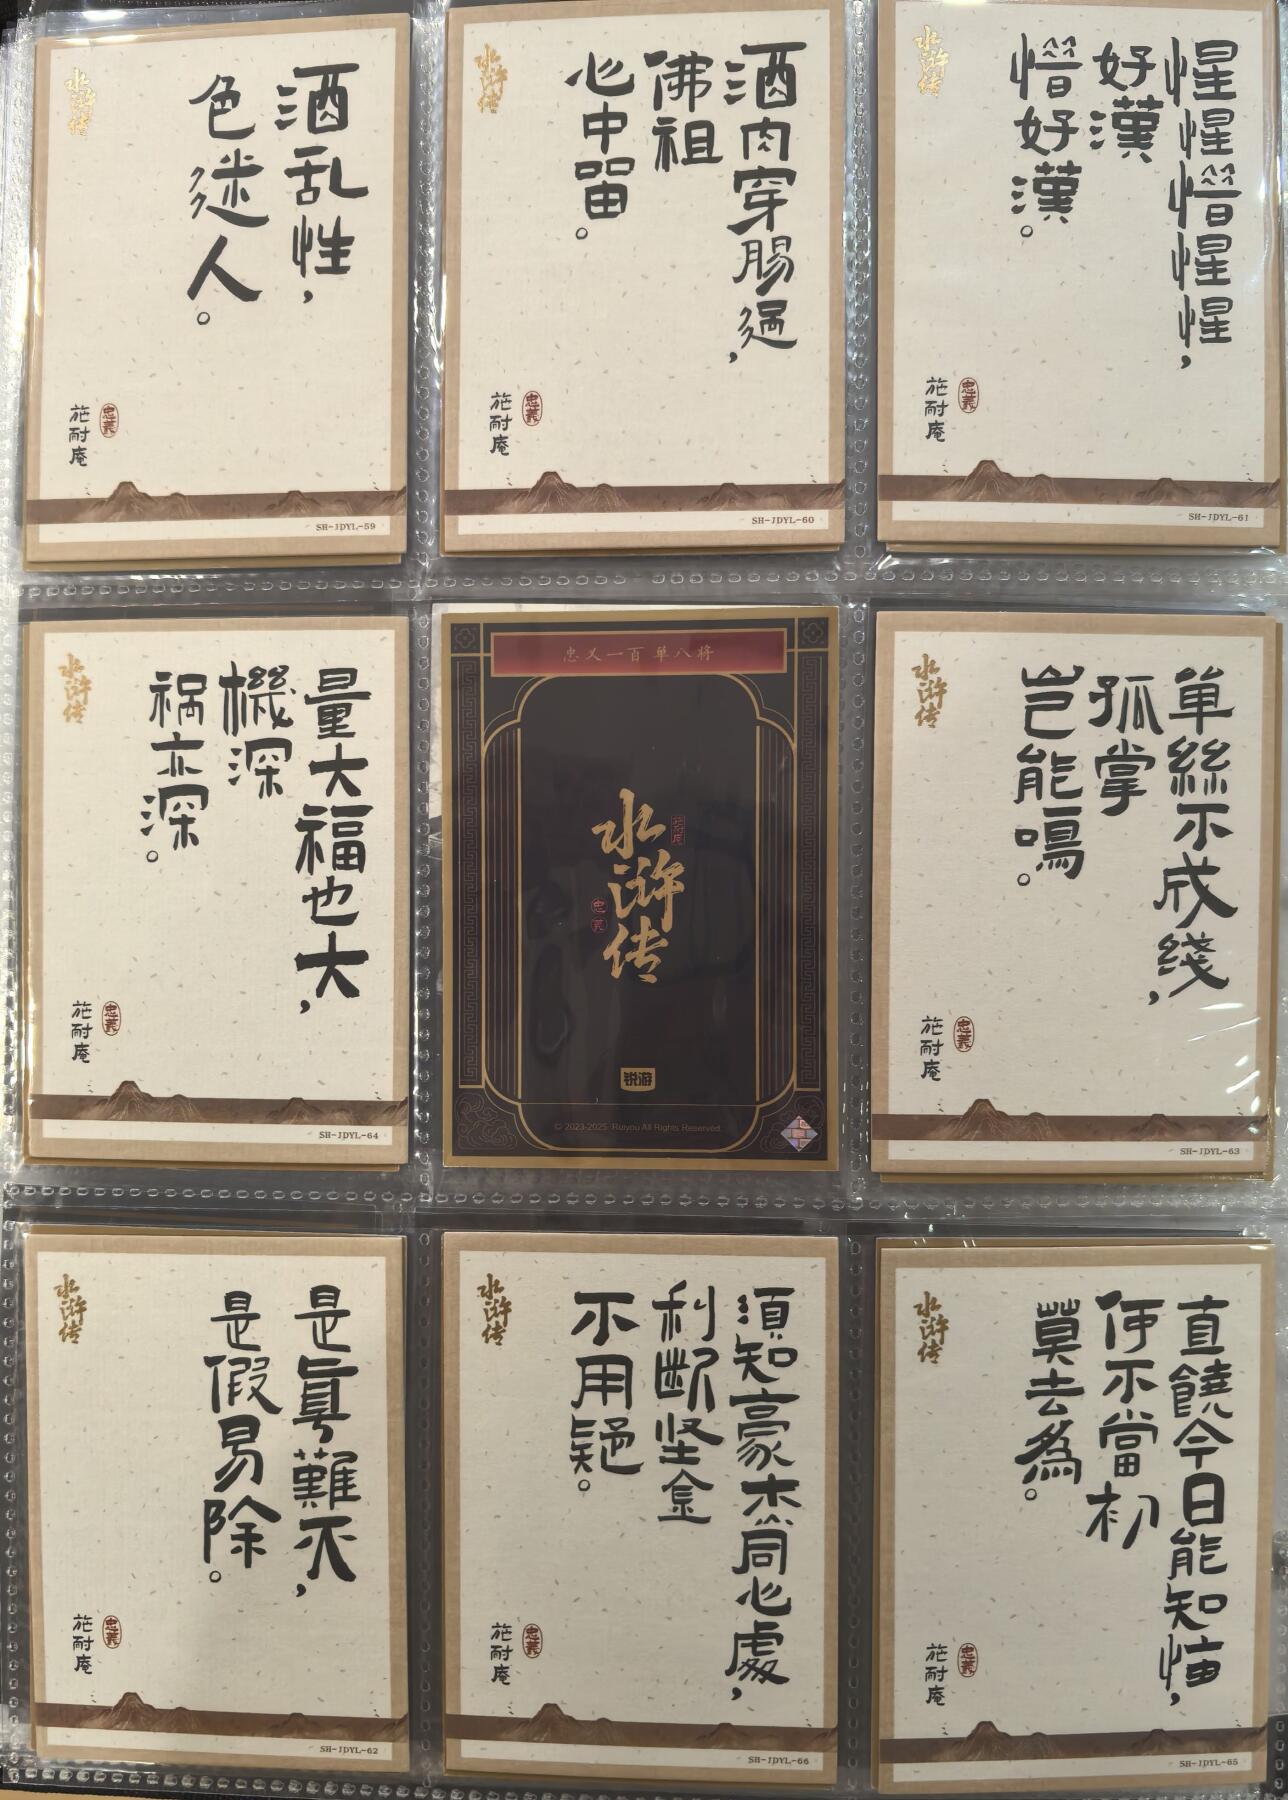 水浒传
酒乱性,
色迷人。
施耐庵
忠義
SH-JDYL-59
水浒传
酒肉穿腸過,
佛祖
心中留。
施耐庵
忠義
SH-JDYL-60
水浒传
惺惺惜惺惺,
好漢
惜好漢。
施耐庵
忠義
SH-JDYL-61
水浒传
量大福也大,
機深
祸亦深。
施耐庵
忠義
SH-JDYL-64
忠义一百单八将
水浒传
施耐庵
忠義
锐游
© 2023-2025 Ruiyou All Rights Reserved.
水浒传
单絲不成綫,
孤掌
岂能鳴。
施耐庵
忠義
SH-JDYL-63
水浒传
是真難灭,
是假易除。
施耐庵
忠義
SH-JDYL-62
水浒传
須知豪杰同心處,
利断坚金
不用疑。
施耐庵
忠義
SH-JDYL-66
水浒传
直饒今日能知悔,
何不當初
莫去為。
施耐庵
忠義
SH-JDYL-65